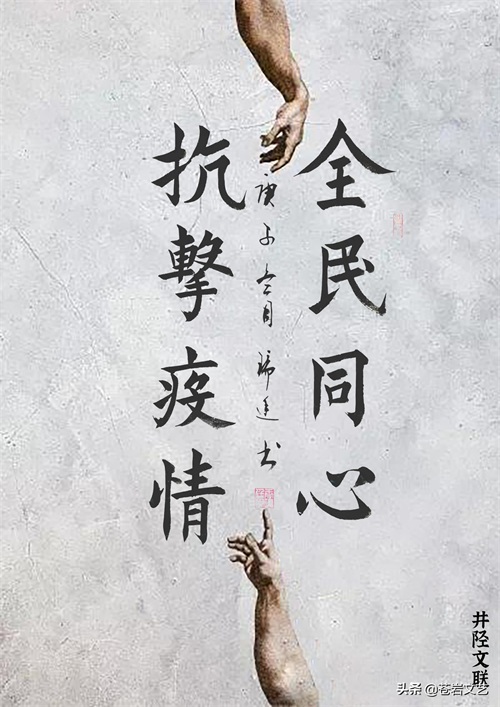 全民同心
抗擊疫情
庚子月书
井陉文联
头条 @苍岩文艺